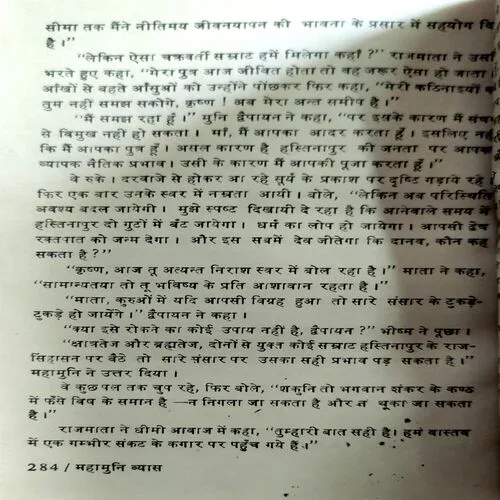 सीमा तक मैंने नीतिमय जीवनयापन की भावना के प्रसार में सहयोग
है।”
“लेकिन ऐसा चक्रवर्ती सम्राट हमें मिलेगा कहां ?” राजमाता ने
भरते हुए कहा, “मेरा पुत्र आज जीवित होता तो वह जरूर ऐसा हो जाता।
आँखों से बहते आँसुओं को उन्होंने पोंछकर फिर कहा, “मेरी कठिनाइयाँ
तुम नहीं समझ सकोगे, कृष्ण ! अब मेरा अन्त समीप है।”
“मैं समझ रहा हूँ।” मुनि द्वैपायन ने कहा, “पर इसके कारण मैं
से विमुख नहीं हो सकता। माँ, मैं आपका आदर करता हूँ। इसलिए
कि मैं आपका पुत्र हूँ। असल कारण है हस्तिनापुर की जनता पर आपका
व्यापक नैतिक प्रभाव। उसी के कारण मैं आपकी पूजा करता हूँ।”
वे रुके। दरवाजे से होकर आ रहे सूर्य के प्रकाश पर दृष्टि गड़ाये रहे
फिर एक बार उनके स्वर में नम्रता आयी। बोले, “लेकिन अब परिस्थिति
अवश्य बदल जायेगी। मुझे स्पष्ट दिखायी दे रहा है कि आनेवाले समय में
हस्तिनापुर दो गुटों में बँट जायेगा। धर्म का लोप हो जायेगा। आपसी द्वेष
रक्तपात को जन्म देगा। और इस सबमें देव जीतेगा कि दानव, कौन कह
सकता है ?”
“कृष्ण, आज तू अत्यन्त निराश स्वर में बोल रहा है।” माता ने कहा,
“सामान्यतया तो तू भविष्य के प्रति आशावान रहता है।”
“माता, कुरुओं में यदि आपसी विग्रह हुआ तो सारे संसार के टुकड़े-
टुकड़े हो जायेंगे।” द्वैपायन ने कहा।
“क्या इसे रोकने का कोई उपाय नहीं है, द्वैपायन ?” भीष्म ने पूछा।
“क्षात्रतेज और ब्रह्मतेज, दोनों से युक्त कोई सम्राट हस्तिनापुर के राज-
सिंहासन पर बैठे तो सारे संसार पर उसका सही प्रभाव पड़ सकता है।”
महामुनि ने उत्तर दिया।
वे कुछ पल तक चुप रहे, फिर बोले, “शकुनि तो भगवान शंकर के कण्ठ
में फँसे विष के समान है —न निगला जा सकता है और न थूका जा सकता
है।”
राजमाता ने धीमी आवाज में कहा, “तुम्हारी बात सही है। हम वास्तव
में एक गम्भीर संकट के कगार पर पहुँच गये हैं।”
284 / महामुनि व्यास